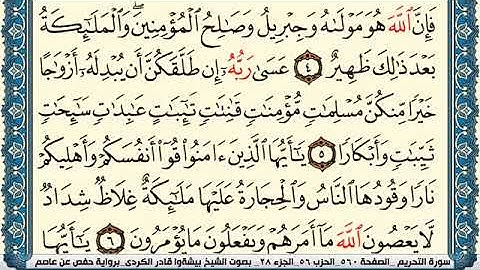 فَإِنَّ ٱللَّهَ هُوَ مَوْلَىٰهُ وَجِبْرِيلُ وَصَٰلِحُ ٱلْمُؤْمِنِينَ ۖ وَٱلْمَلَٰٓئِكَةُ
بَعْدَ ذَٰلِكَ ظَهِيرٌ ٤ عَسَىٰ رَبُّهُۥٓ إِن طَلَّقَكُنَّ أَن يُبْدِلَهُۥٓ أَزْوَٰجًا
خَيْرًا مِّنكُنَّ مُسْلِمَٰتٍ مُّؤْمِنَٰتٍ قَٰنِتَٰتٍ تَٰٓئِبَٰتٍ عَٰبِدَٰتٍ سَٰٓئِحَٰتٍ
ثَيِّبَٰتٍ وَأَبْكَارًا ٥ يَٰٓأَيُّهَا ٱلَّذِينَ ءَامَنُوا۟ قُوٓا۟ أَنفُسَكُمْ وَأَهْلِيكُمْ
نَارًا وَقُودُهَا ٱلنَّاسُ وَٱلْحِجَارَةُ عَلَيْهَا مَلَٰٓئِكَةٌ غِلَاظٌ شِدَادٌ
لَّا يَعْصُونَ ٱللَّهَ مَآ أَمَرَهُمْ وَيَفْعَلُونَ مَا يُؤْمَرُونَ ٦ يَٰٓأَيُّهَا
سورة التحريم _ الصفحة ٥٦٠ _ الحزب ٥٦ _ الجزء ٢٨ _ بصوت الشيخ بيشةوا قادر الكردي _ برواية حفص عن عاصم